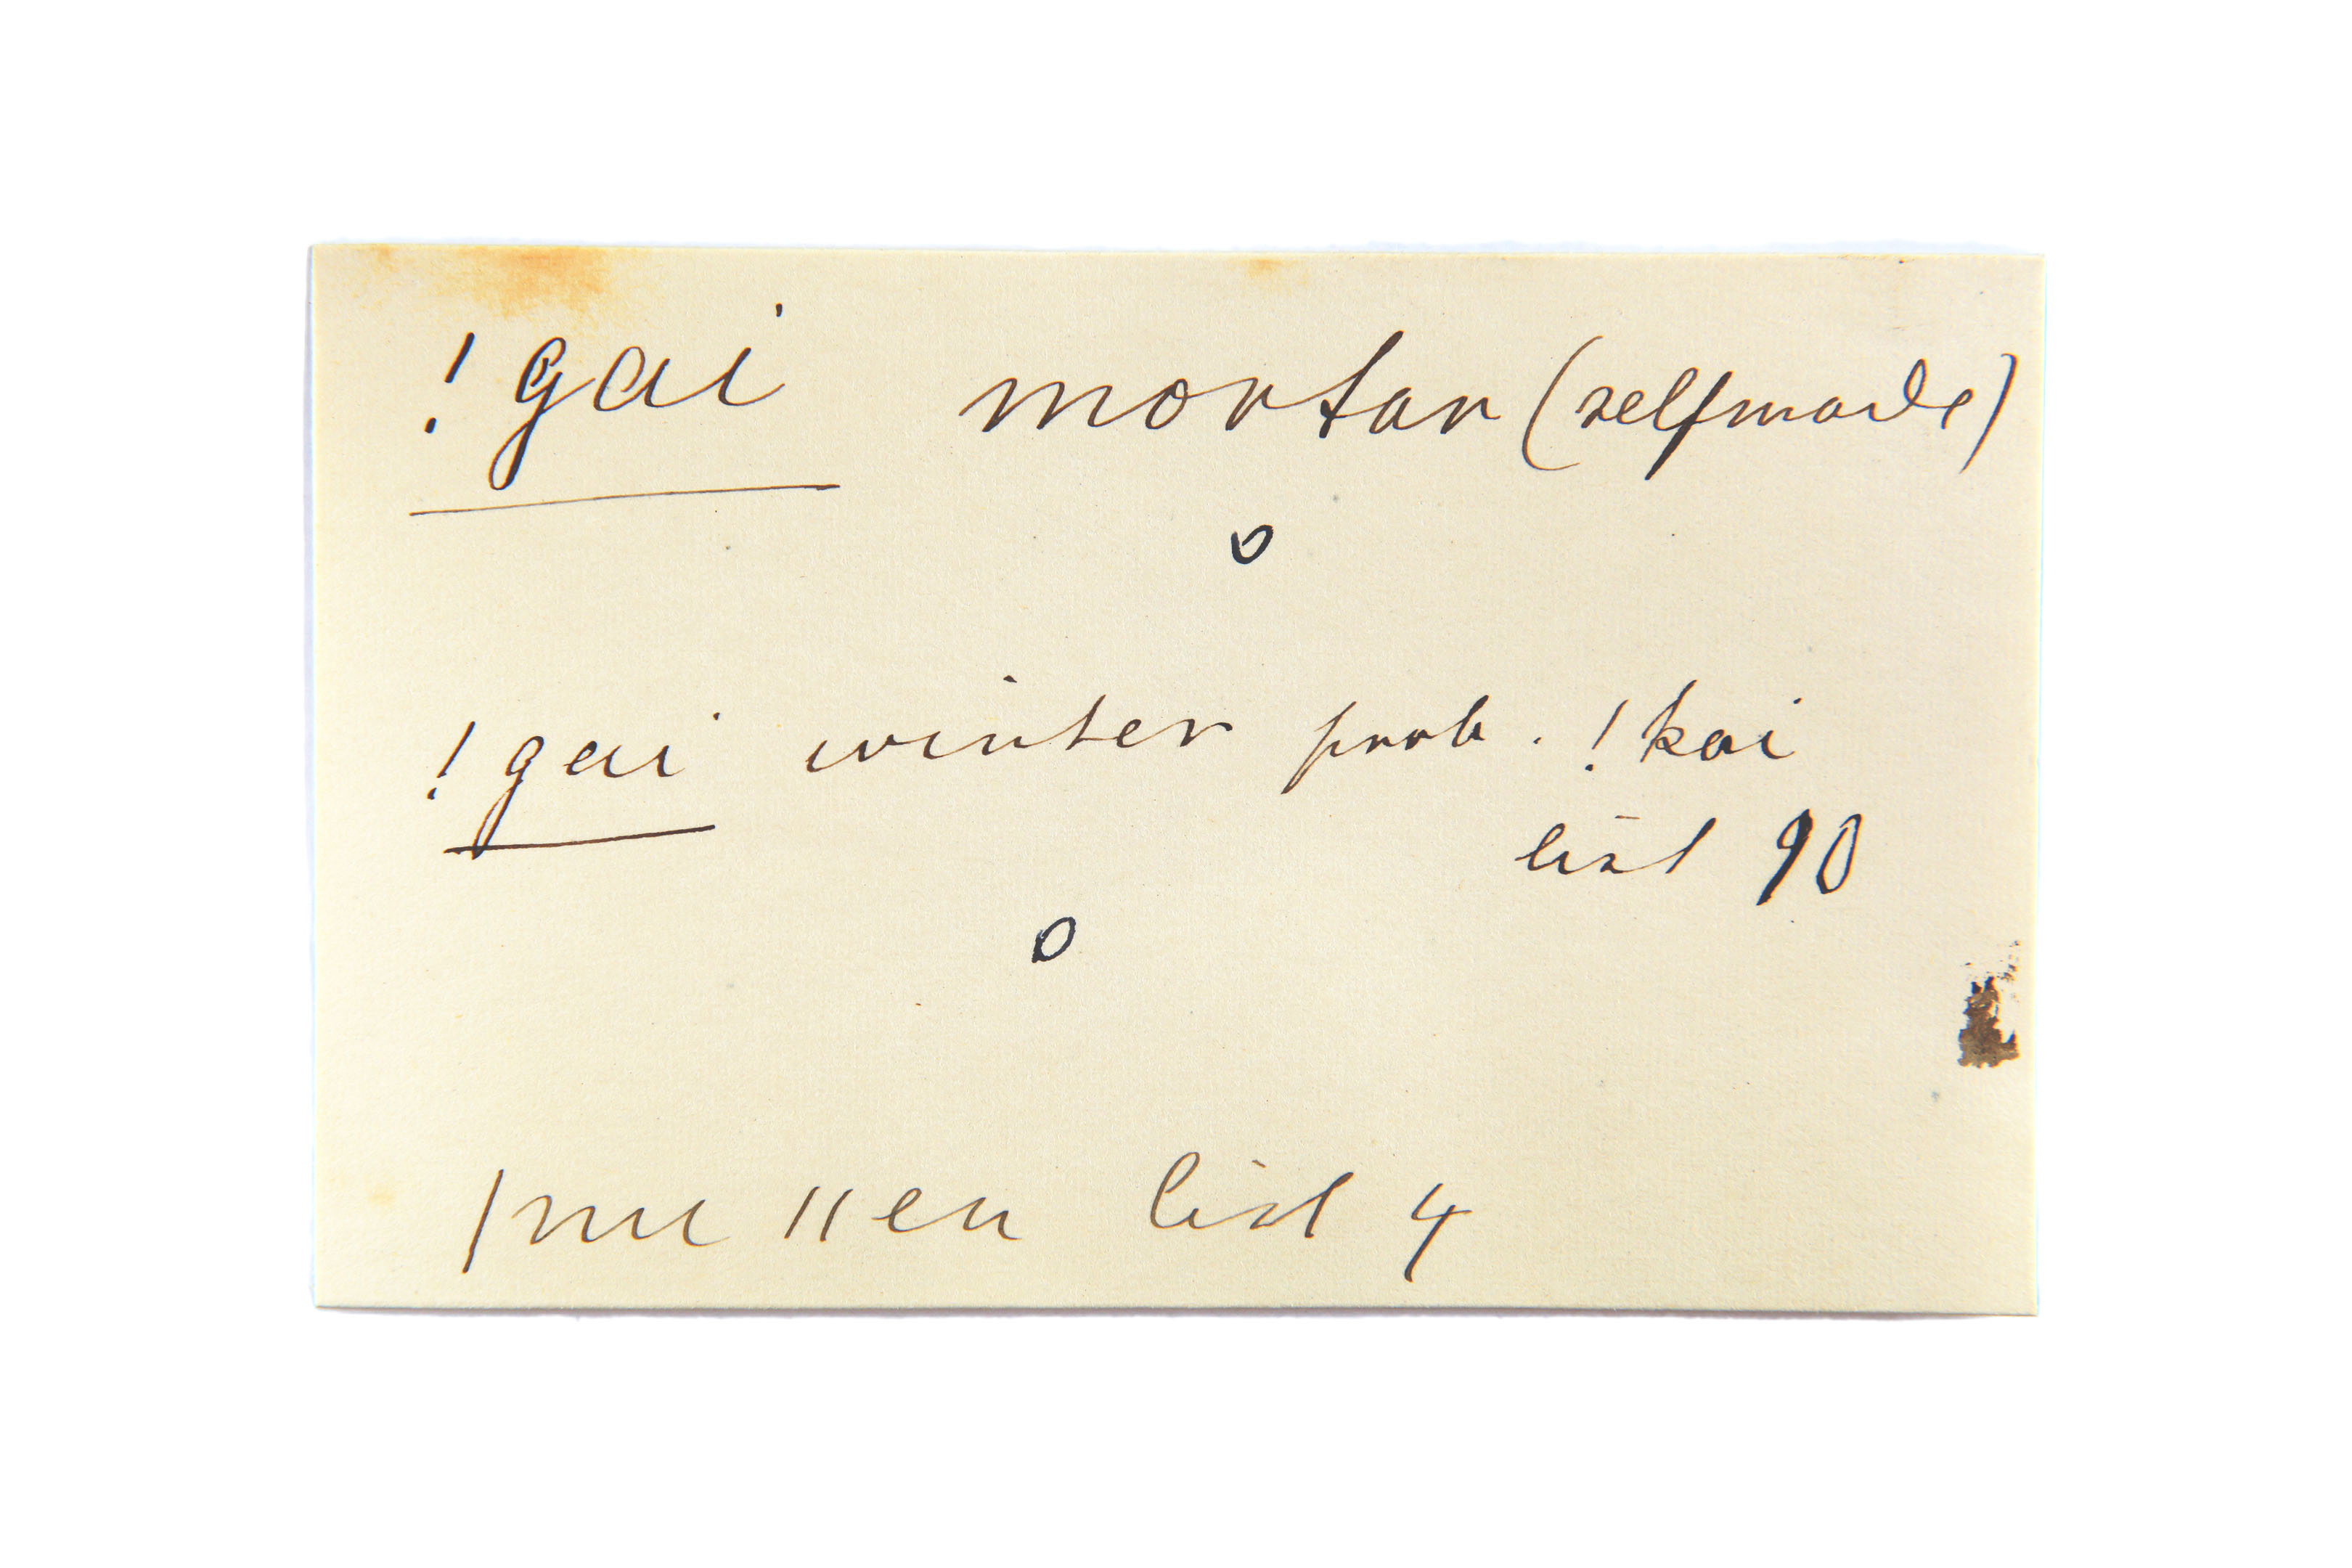 !gai mortar (selfmade)
o
!gai winter prob. !kai
list 90
o
|nu ||en list 4